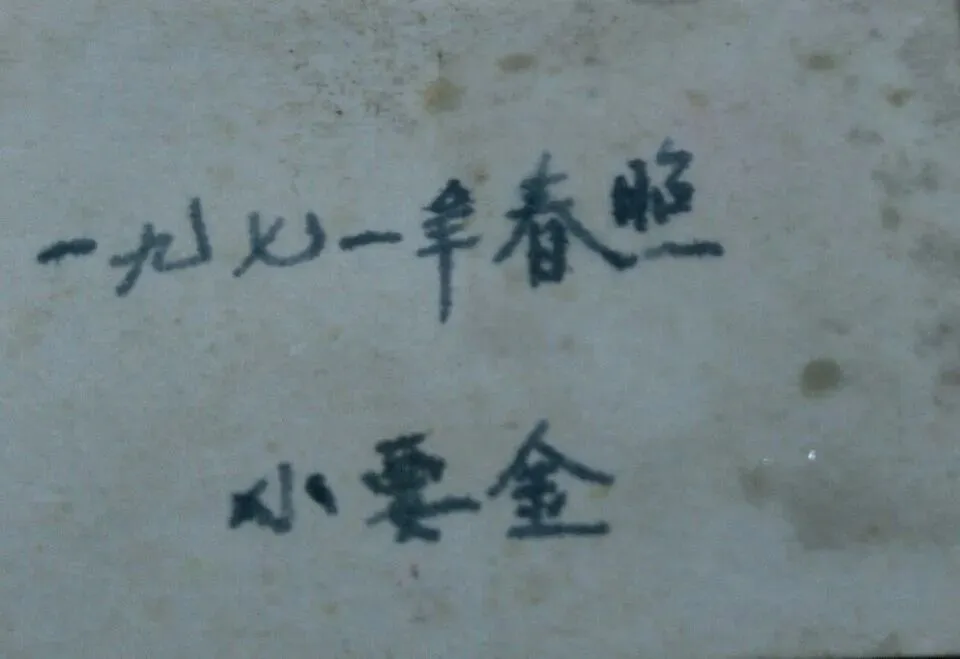 一九七一年春照
小要金